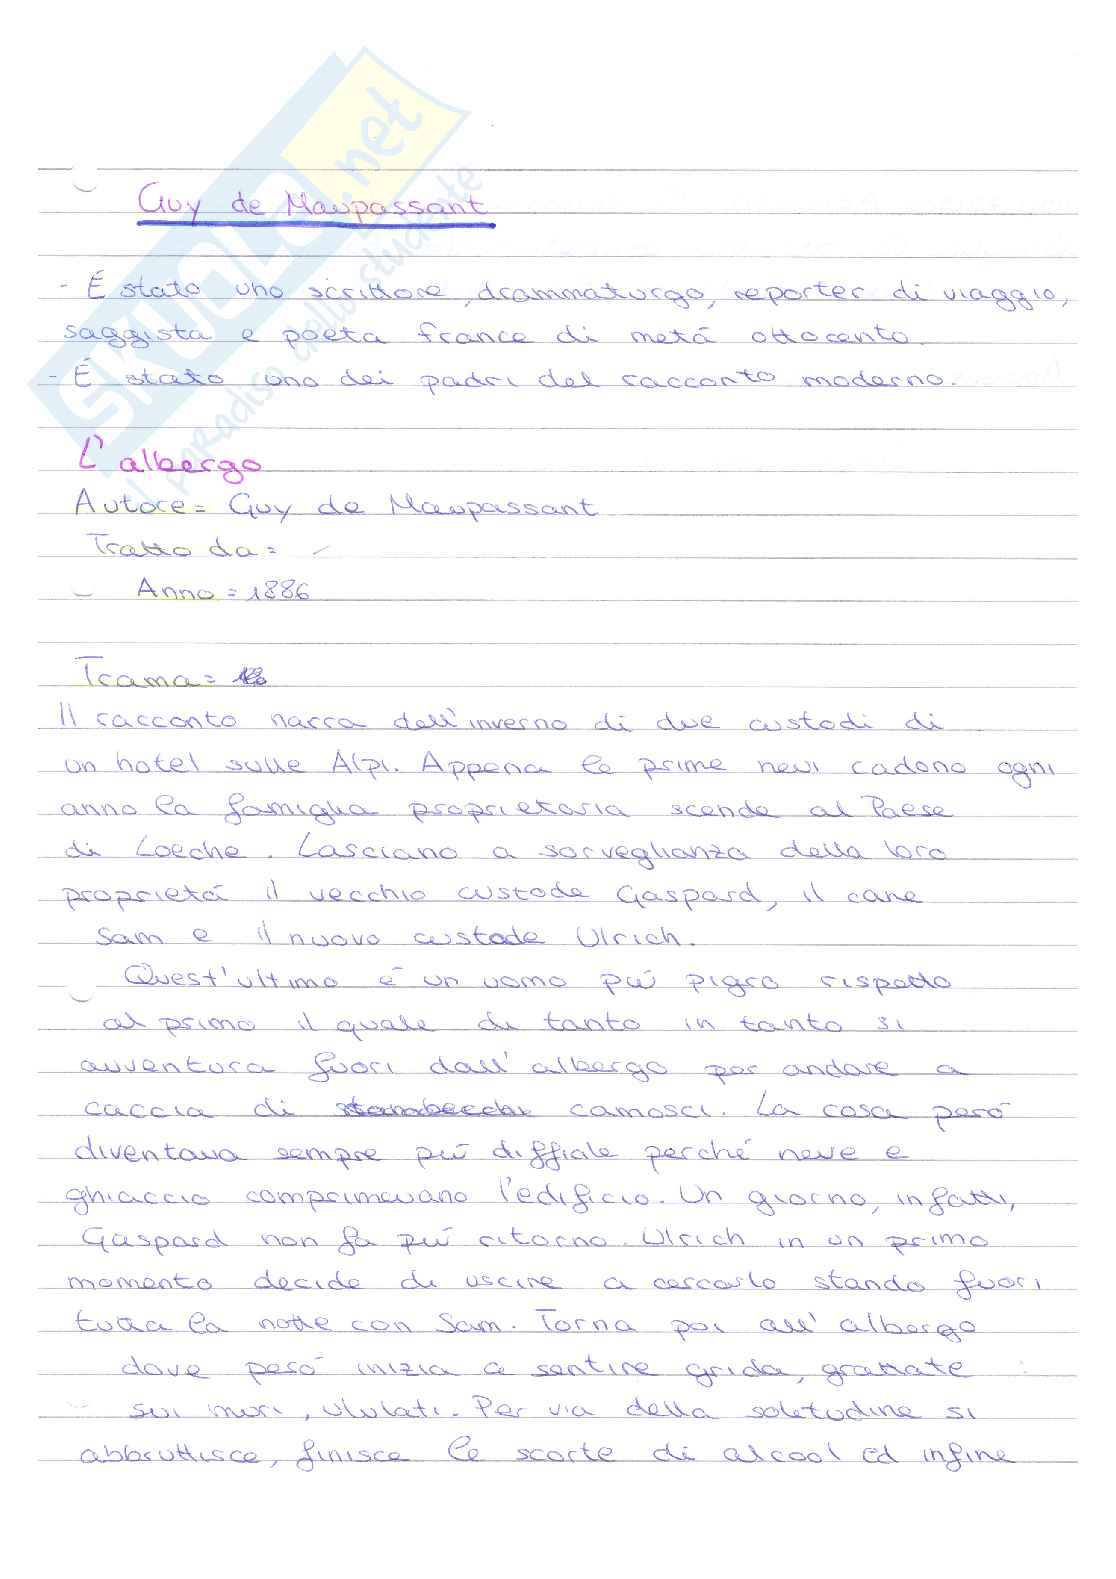 SKUOLA.net
il paradiso dello studente
Guy de Maupassant
- É stato uno scrittore, drammaturgo, reporter di viaggio,
saggista e poeta france di metá ottocento.
- É stato uno dei padri del racconto moderno.
L'albergo
Autore = Guy de Maupassant
Tratto da = -
Anno = 1886
Trama =
Il racconto narra dell'inverno di due custodi di
un hotel sulle Alpi. Appena le prime nevi cadono ogni
anno la famiglia proprietaria scende al Paese
di Loeche. Lasciano a sorveglianza della loro
proprietá il vecchio custode Gaspard, il cane
Sam e il nuovo custode Ulrich.
Quest'ultimo é un uomo piú pigro rispetto
al primo il quale di tanto in tanto si
avventura fuori dall'albergo per andare a
caccia di stambecchi camosci. La cosa peró
diventava sempre piú difficile perché neve e
ghiaccio comprimevano l'edificio. Un giorno, infatti,
Gaspard non fa piú ritorno. Ulrich in un primo
momento decide di uscire a cercarlo stando fuori
tutta la notte con Sam. Torna poi all'albergo
dove peró inizia a sentire grida, grattate
sui muri, ululati. Per via della soletudine si
abbruttisce, finisce le scorte di alcool ed infine